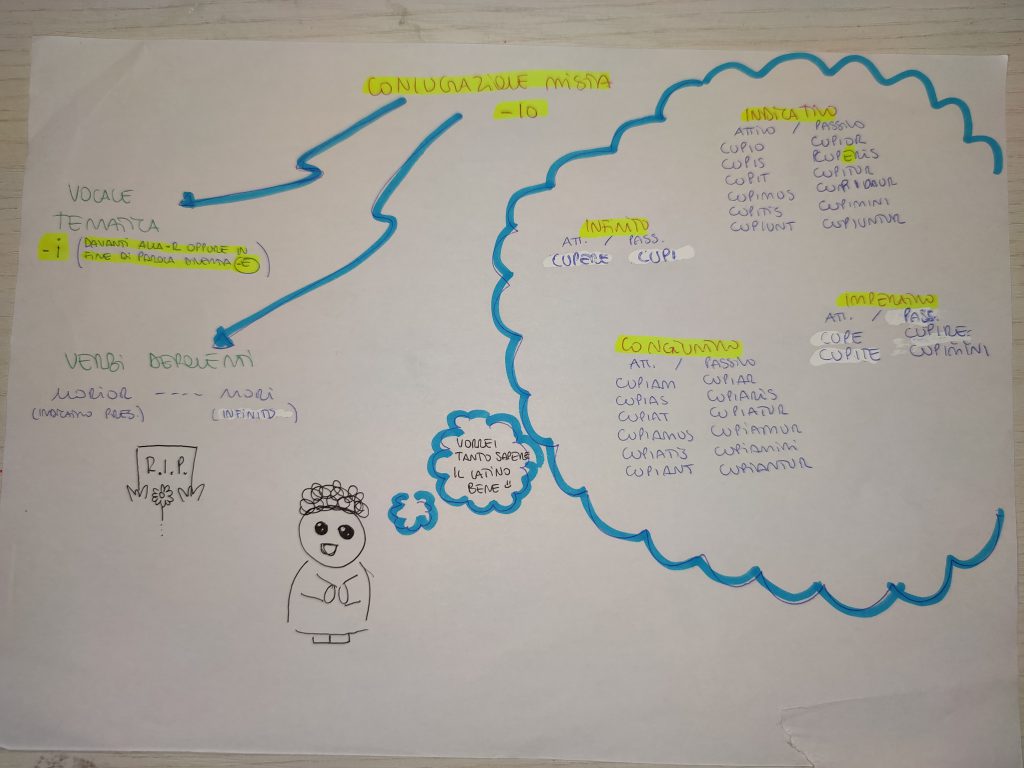 CONIUGAZIONE MISTA
-IO
VOCALE
TEMATICA
-i (DAVANTI ALLA -R OPPURE IN
FINE DI PAROLA DIVENTA E)
VERBI DEPONENTI
MORIOR ---- MORI
(INDICATIVO PRES.) (INFINITO)
R.I.P.
VORREI
TANTO SAPERE
IL LATINO
BENE
INFINITO
ATT. / PASS.
CUPERE CUPI
INDICATIVO
ATTIVO / PASSIVO
CUPIO CUPIOR
CUPIS CUPERIS
CUPIT CUPITUR
CUPIMUS
CUPITIS CUPIMINI
CUPIUNT CUPIUNTUR
CONGIUNTIVO
ATT. / PASSIVO
CUPIAM CUPIAR
CUPIAS CUPIARIS
CUPIAT CUPIATUR
CUPIAMUS CUPIAMUR
CUPIATIS CUPIAMINI
CUPIANT CUPIANTUR
IMPERATIVO
ATT. / PASS.
COPE CUPIRE
CUPITE CUPIMINI